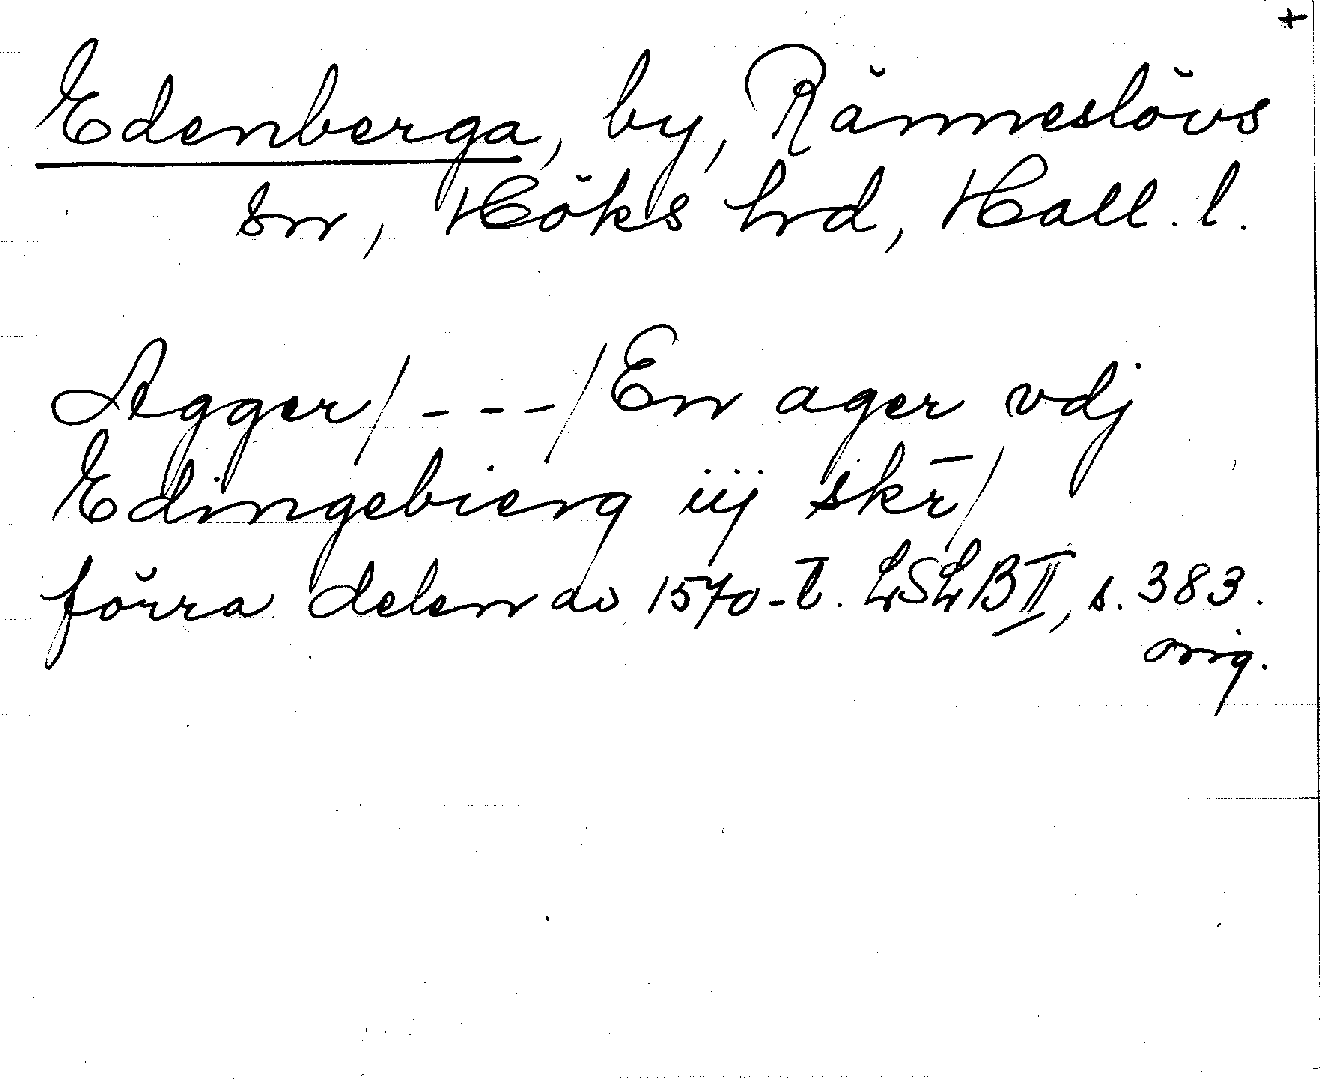 +
Edenberga, by, Ränneslövs
sn, Höks hrd, Hall. l.
Agger/ - - - /En ager vdj
Edingebierg iij skr̄/
förra delen av 1570-t. LSLB II, s. 383.
orig.